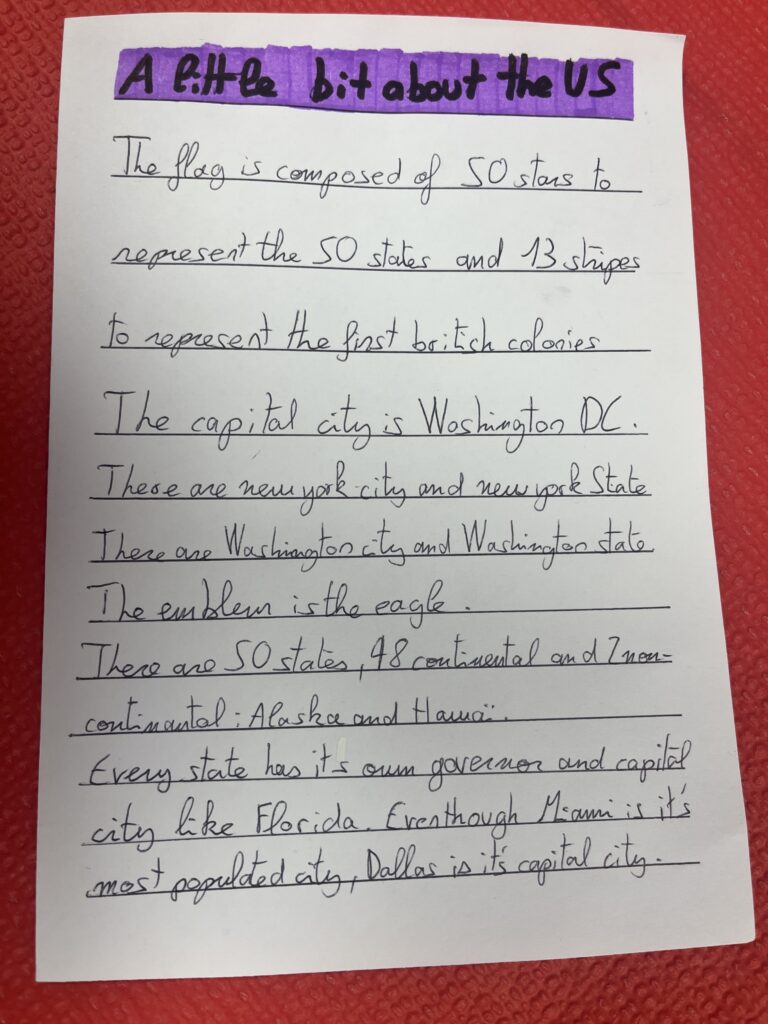 A little bit about the US
The flag is composed of 50 stars to
represent the 50 states and 13 stripes
to represent the first british colonies
The capital city is Washington DC.
There are new york city and new york State
There are Washington city and Washington state
The emblem is the eagle.
There are 50 states, 48 continental and 2 non-
continantal : Alaska and Hawaï.
Every state has it's own governor and capital
city like Florida. Eventhough Miami is it's
most populated city, Dallas is it's capital city.